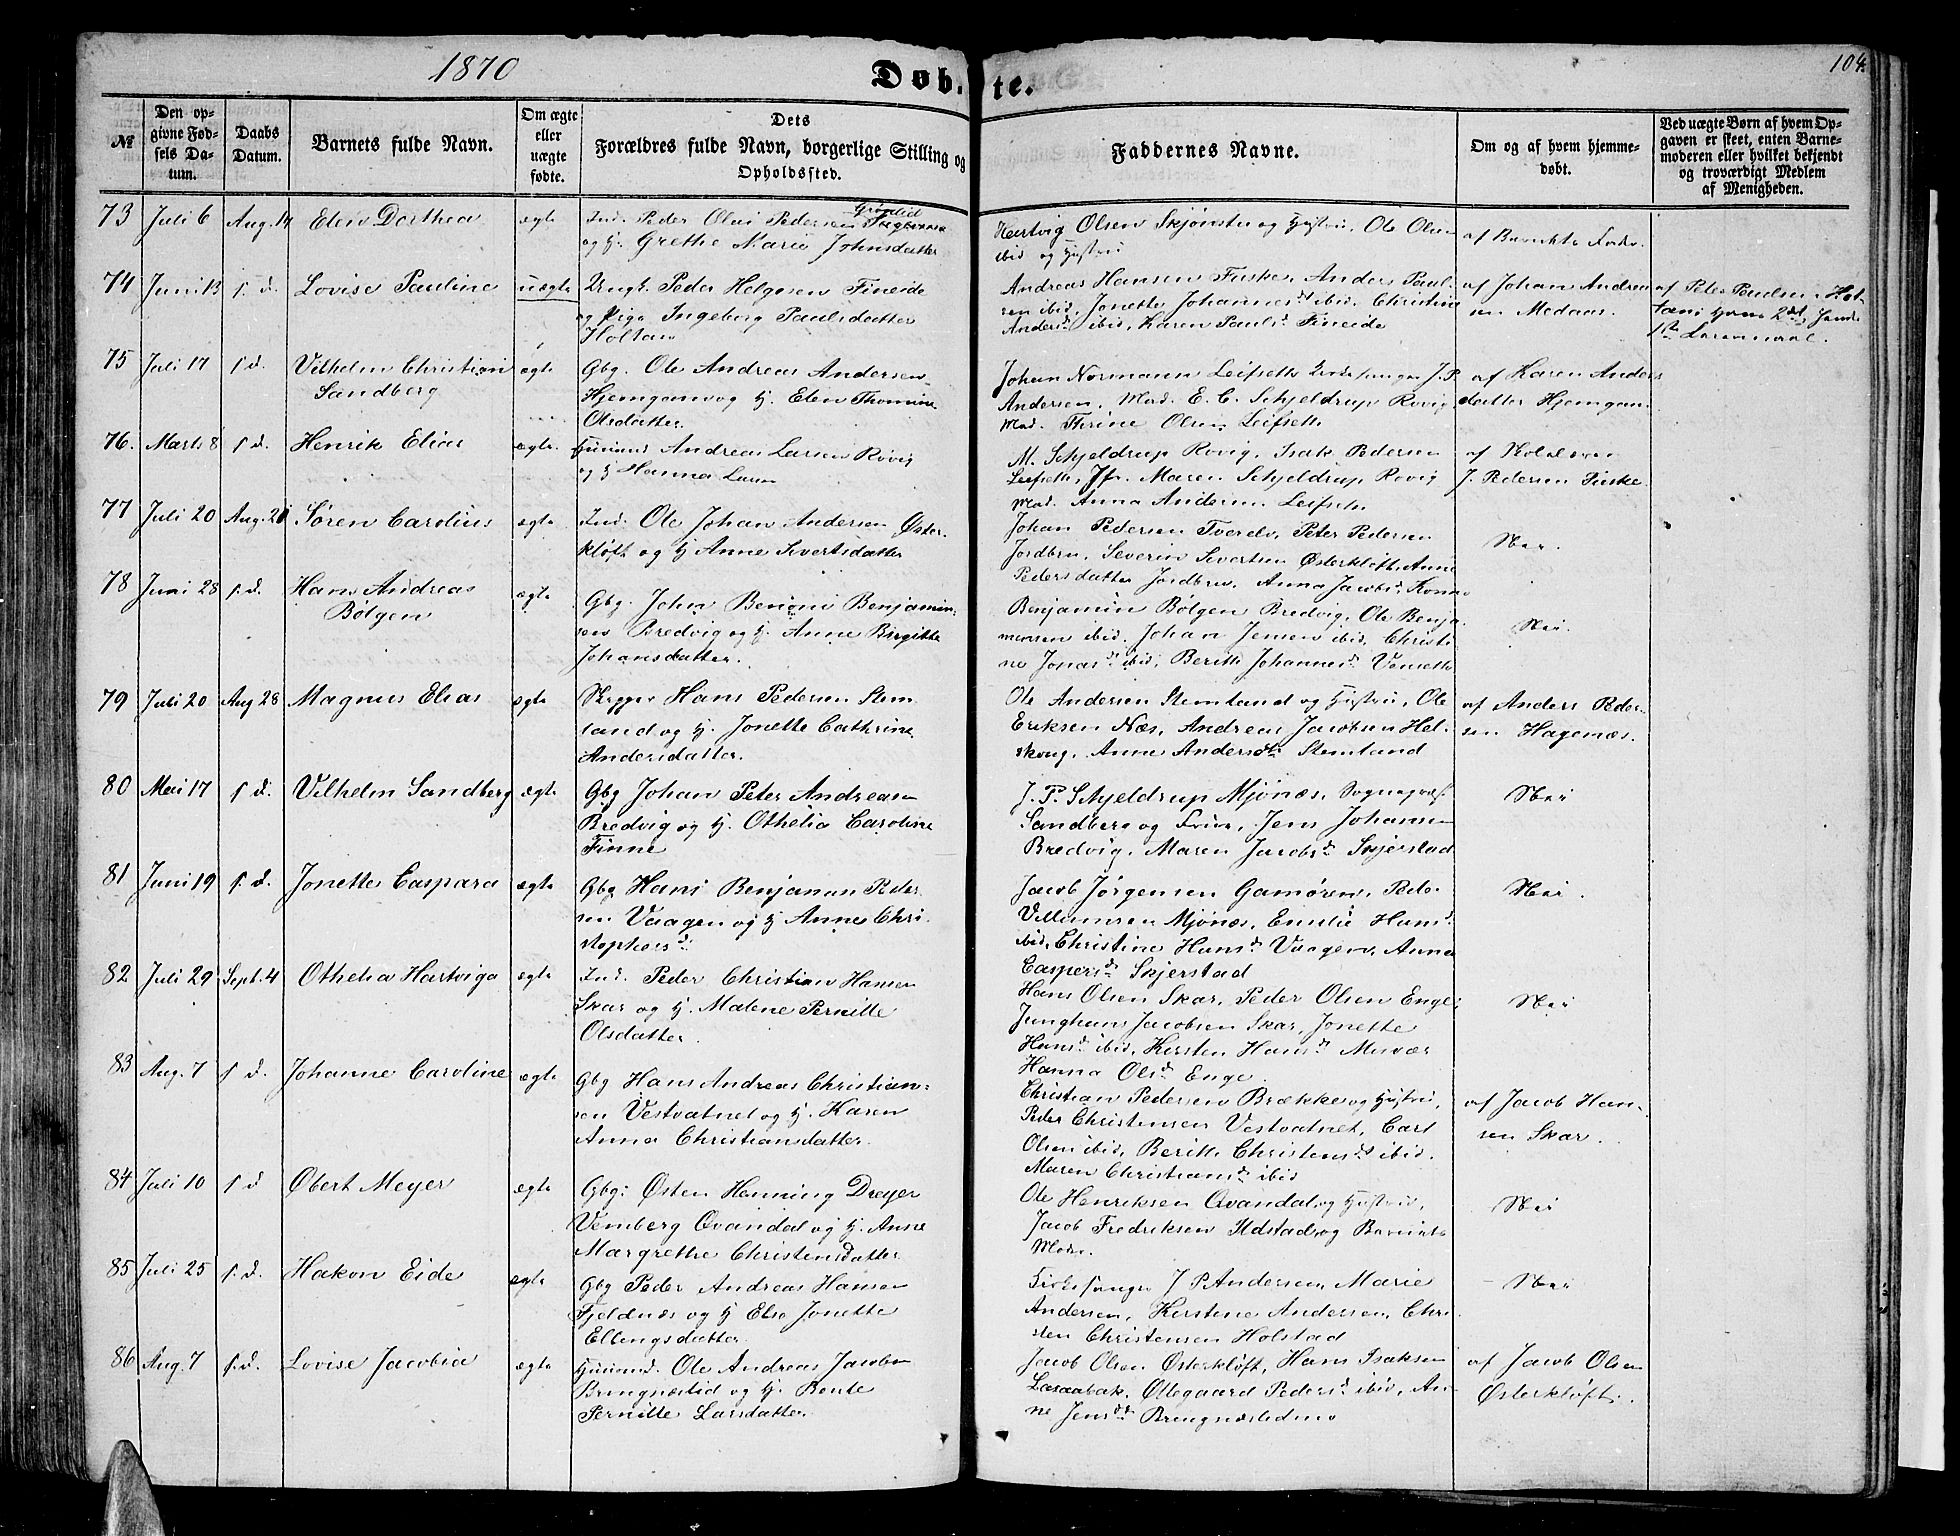 1870
Døb. te.
104
№
Den op-
givne Fød-
sels Da-
tum.
Daabs
Datum.
Barnets fulde Navn.
Om ægte
eller
uægte
fødte.
Dets
Forældres fulde Navn, borgerlige Stilling og
Opholdssted.
Faddernes Navne.
Om og af hvem hjemme-
døbt.
Ved uægte Børn af hvem Op-
gaven er skeet, enten Barne-
moderen eller hvilket bekjendt
og troværdigt Medlem
af Menigheden.
73 Juli 6 Aug. 14 Elen Dorthea ægte Ind. Peder Olai Pedersen
og h. Grethe Marie Johnsdatter
Hertvig Olsen Skjønstu og Hustru, Ole Olsen
ibid og Hustru
af Barnets Fader
74 Juni 13 s. d. Lovise Pauline uægte Ungk. Peder Helgesen Fineide
og Pige Ingeborg Paulsdatter
Holtan
Andreas Hansen Fuske, Anders Paul-
sen ibid, Jonette Johannesd. ibid, Christina
Andersd. ibid, Karen Paulsd. Fineide
af Johan Andrea
sen Medaas.
af Peter Paulsen Hol
tan
75 Juli 17 s d. Vilhelm Christian
Sandberg
ægte Gbg. Ole Andreas Andersen
Hjemgam og h. Elen Thomine
Olsdatter.
Johan Normann Leifseth Kirkesanger J. P.
Andersen, Mad. E. C. Schjeldrup Rovig,
Mad. Thrine Olsen Leifseth
af Karen Anders
datter Hjemgam
76. Marts 8 s d. Henrik Elias ægte. Huusmd Andreas Larsen Rovig
og h Hanna Larsen
M. Schjeldrup Rovig, Isak Pedersen
Leifseth, Jfr. Maren Schjeldrup Rovig
Mad. Anna Andersen Leifseth
af Skolelærer
J. Pedersen Fuske
77 Juli 20 Aug. 21 Søren Carolius ægte Ind. Ole Johan Andersen Øster
kløft og h Anne Sivertsdatter
Johan Pedersen Tverelv, Peter Pedersen
Jordbru, Severin Sivertsen Østerkløft, Anne
Pedersdatter Jordbru, Anna Jacobsd.
Nei.
78 Juni 28 s. d. Hans Andreas
Bølgen
ægte Gbg. John Benoni Benjamin-
sen Bredvig og h. Anne Birgitte
Johansdatter.
Benjamin Bølgen Bredvig, Ole Benja
minsen ibid, Johan Jensen ibid, Christi
ne Jonasd. ibid, Berith Johannesd. Venseth
Nei.
79 Juli 20 Aug 28 Magnus Elias ægte Skrepper Hans Pedersen Stem
land og h. Jonette Cathrine
Andersdatter.
Ole Andersen Stemland og Hustru, Ole
Eriksen Næs, Andreas Jacobsen Hel-
skoug, Anne Andersdtr. Stemland
af Anders Peder
sen Hagenæs.
80 Mai 17 s d. Vilhelm Sandberg ægte Gbg Johan Peter Andreasen
Bredvig og h. Othelia Caroline
Finne
J. P. Schjeldrup Mjønæs, Sognepræst
Sandberg og Frue, Jens Johansen
Bredvig, Maren Jacobsd. Skjerstad
Nei
81 Juni 19 s. d. Jonette Caspara ægte Gbg Hans Benjamin Peder
sen Vaagen og h Anne Chri
stophersd.
Jacob Jørgensen Gamøren, Peder
Villumsen Mjønæs, Emilie Hansd.
ibid, Christine Hansd. Vaagen, Anna
Caspersd. Skjerstad
Nei.
82 Juli 29 Sept. 4 Othelia Hartviga ægte Ind. Peder Christian Hansen
Skar og h. Malene Pernille
Olsdatter.
Hans Olsen Skar, Peder Olsen Enge,
Junghans Jacobsen Skar, Jonette
Hansd. ibid, Kirsten Hansd. Misvær
Hanna Olsd. Enge.
Nei
83 Aug. 7 s d. Johanne Caroline ægte Gbg Hans Andreas Christian-
sen Vestvatnet og h. Karen
Anna Christiansdatter.
Christian Pedersen Brække og Hustru,
Peder Christensen Vestvatnet, Carl
Olsen ibid, Berith Christensd. ibid.
Maren Christiansd. ibid
af Jacob Han-
sen Skar.
84 Juli 10 s d Obert Meyer ægte Gbg: Østen Henning Dreyer
Vemberg Qvandal og h. Anne
Margrethe Christensdatter
Ole Henriksen Qvandal og Hustru,
Jacob Fredriksen Ildstad og Barnets
Mode.
Nei
85 Juli 25 s. d. Hakon Eide ægte Gbg Peder Andreas Hansen
Fjeldnæs og h Else Jonette
Ellingsdatter.
Kirkesanger J P Andersen, Marie
Andersen, Kirstine Andersen, Chri
sten Christensen Holstad
Nei
86 Aug. 7 s. d. Lovise Jacobia ægte Huusmd. Ole Andreas Jacobsen
Bringnæslid og h. Bente
Pernille Larsdatter.
Jacob Olsen Østerkløft, Hans Isaksen
Laxaabak, Ollegaard Pedersd. ibid, An-
ne Jensd. Bringnæsliden
af Jacob Olsen
Østerkløft.